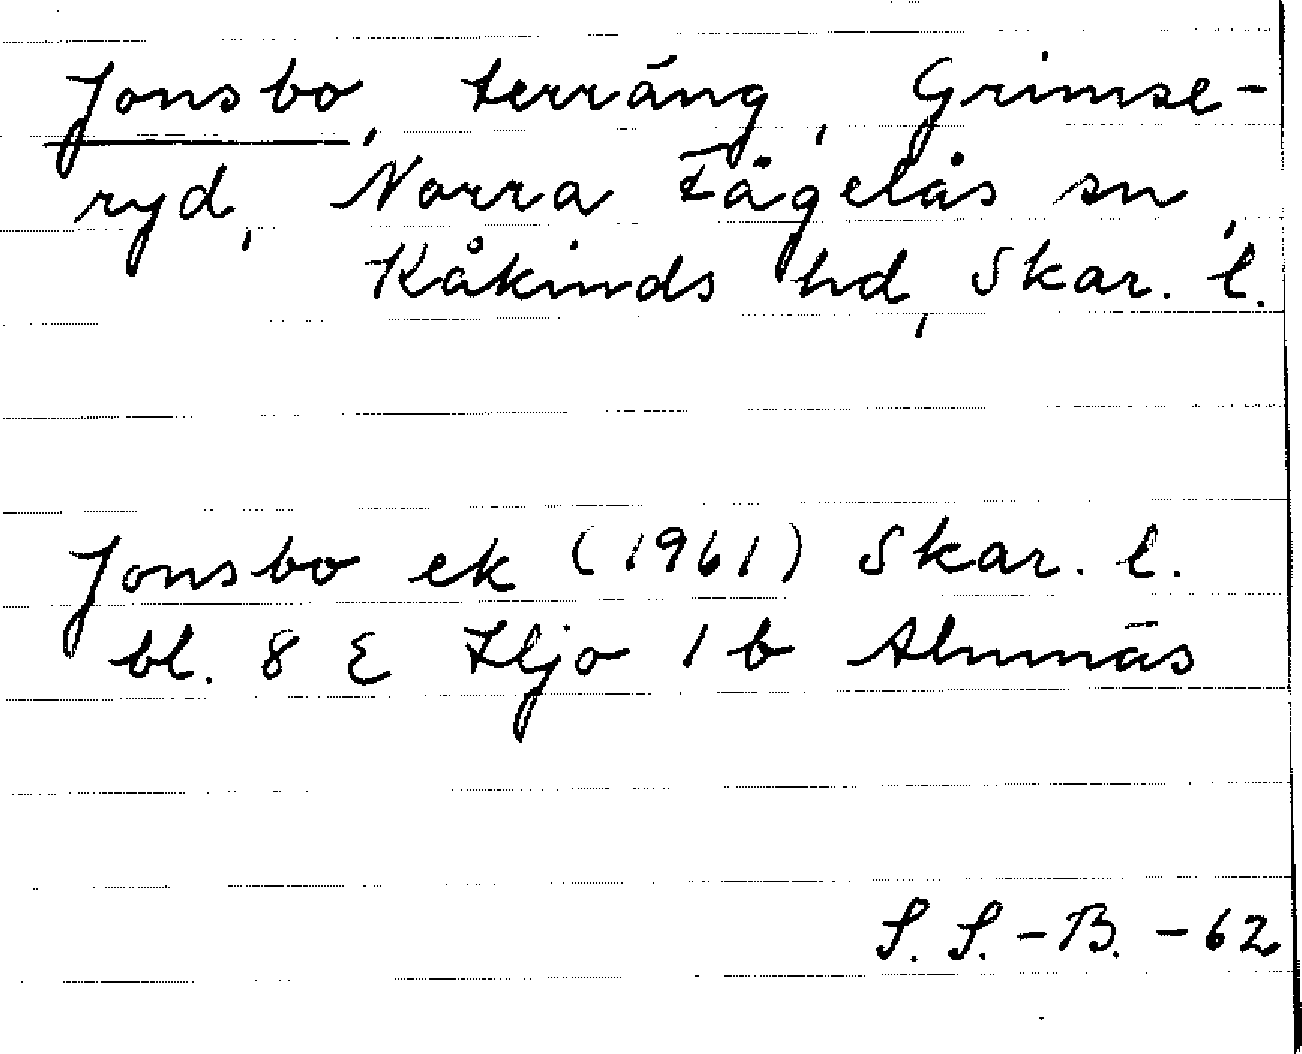 Jonsbo, terräng, Grimse-
ryd, Norra Fågelås sn,
Kåkinds hd, Skar. l.
Jonsbo ek (1961) Skar. l.
bl. 8 E Hjo 1 b Almnäs
S. S.-B. -62